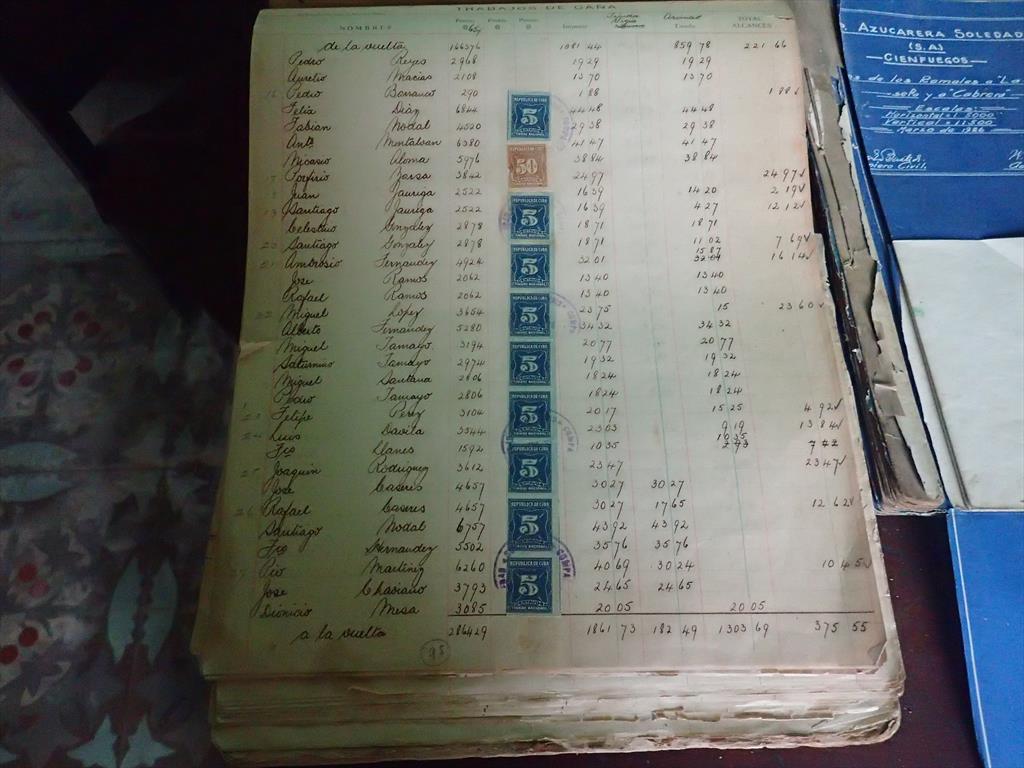 TRABAJOS DE CAÑA
NOMBRES Pesos Pesos Pesos Importe Tienda TOTAL ALCANCES
de la vuelta 166376 1081 44 859 78 221 66
Pedro Reyes 2968 19 29 19 29
Aurelio Macias 2108 13 70 13 70
Pedro Barranco 290 1 88 1 88
Felix Diaz 6844 44 48 44 48
Fabian Nodal 4520 29 38 29 38
Antº Montalvan 6380 41 47 41 47
Nicasio Aloma 5976 38 84 38 84
Porfirio 3842 24 97 24 97
Juan Jauriga 2522 16 39 14 20 2 19
Santiago Jauriga 2522 16 39 4 27 12 12
Celestino Gonzalez 2878 18 71 18 71
23 Santiago Gonzalez 2878 18 71 11 02 7 69
Ambrosio Fernandez 4924 32 01 15 87 32 04 16 14
Jose Ramos 2062 13 40 13 40
Rafael Ramos 2062 13 40 13 40
22 Miguel Lopez 3654 23 75 15 23 60
Alberto Fernandez 5280 34 32 34 32
Miguel Tamayo 3194 20 77 20 77
Saturnino Tamayo 2974 19 32 19 32
Miguel Santana 2806 18 24 18 24
Pedro Tamayo 2806 18 24 18 24
23 Felipe Perez 3104 20 17 15 25 4 92
24 Luis Davila 3544 23 03 9 19 13 84
Fco Llanes 1592 10 35 10 35
25 Joaquin Rodriguez 3612 23 47 23 47
Jose Caseres 4657 30 27 30 27
26 Rafael Caseres 4657 30 27 17 65 12 62
Santiago Nodal 6757 43 92 43 92
Fco Hernandez 5502 35 76 35 76
Pio Martinez 6260 40 69 30 24 10 45
Jose Chaviano 3793 24 65 24 65
Dionicio Mesa 3085 20 05 20 05
a la vuelta 286429 1861 73 182 49 1303 69 375 55
95
REPUBLICA DE CUBA
5
REPUBLICA DE CUBA
50
REPUBLICA DE CUBA
5
REPUBLICA DE CUBA
5
REPUBLICA DE CUBA
5
REPUBLICA DE CUBA
5
REPUBLICA DE CUBA
5
REPUBLICA DE CUBA
5
REPUBLICA DE CUBA
5
REPUBLICA DE CUBA
5
TIMBRE NACIONAL
COMPA
AZUCARERA SOLEDAD
(S.A)
CIENFUEGOS
de los Ramales a "La
y a "Cabrera"
Escalas:
Horizontal = 1:5000
Vertical = 1:1500
Marzo de 1926
Civil